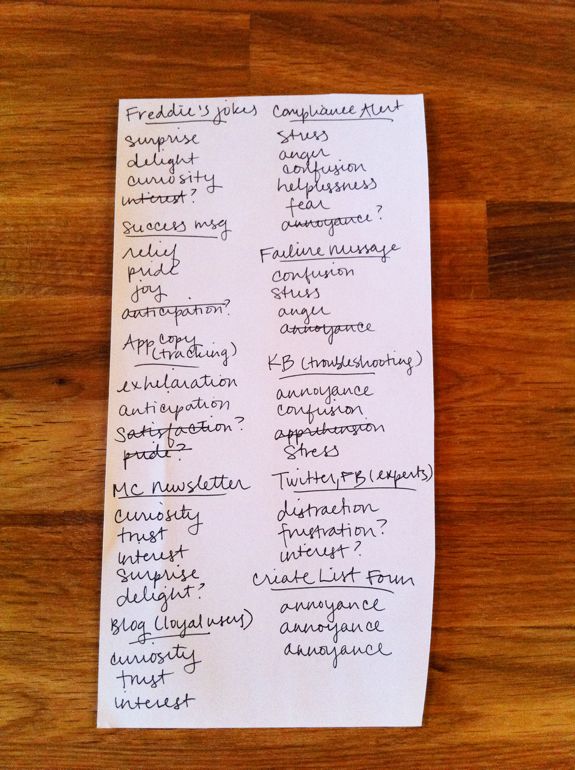 Freddie's jokes
surprise
delight
curiosity
interest?
Success msg
relief
pride
joy
anticipation?
App copy
(tracking)
exhelaration
anticipation
Satisfaction?
pride?
MC Newsletter
curiosity
trust
interest
surprise
delight?
Blog (loyal users)
curiosity
trust
interest
Compliance Alert
stress
anger
confusion
helplessness
fear
annoyance?
Failure Message
confusion
stress
anger
annoyance
KB (troubleshooting)
annoyance
confusion
apprihension
Stress
Twitter, FB (experts)
distraction
frustration?
interest?
Create List Form
annoyance
annoyance
annoyance